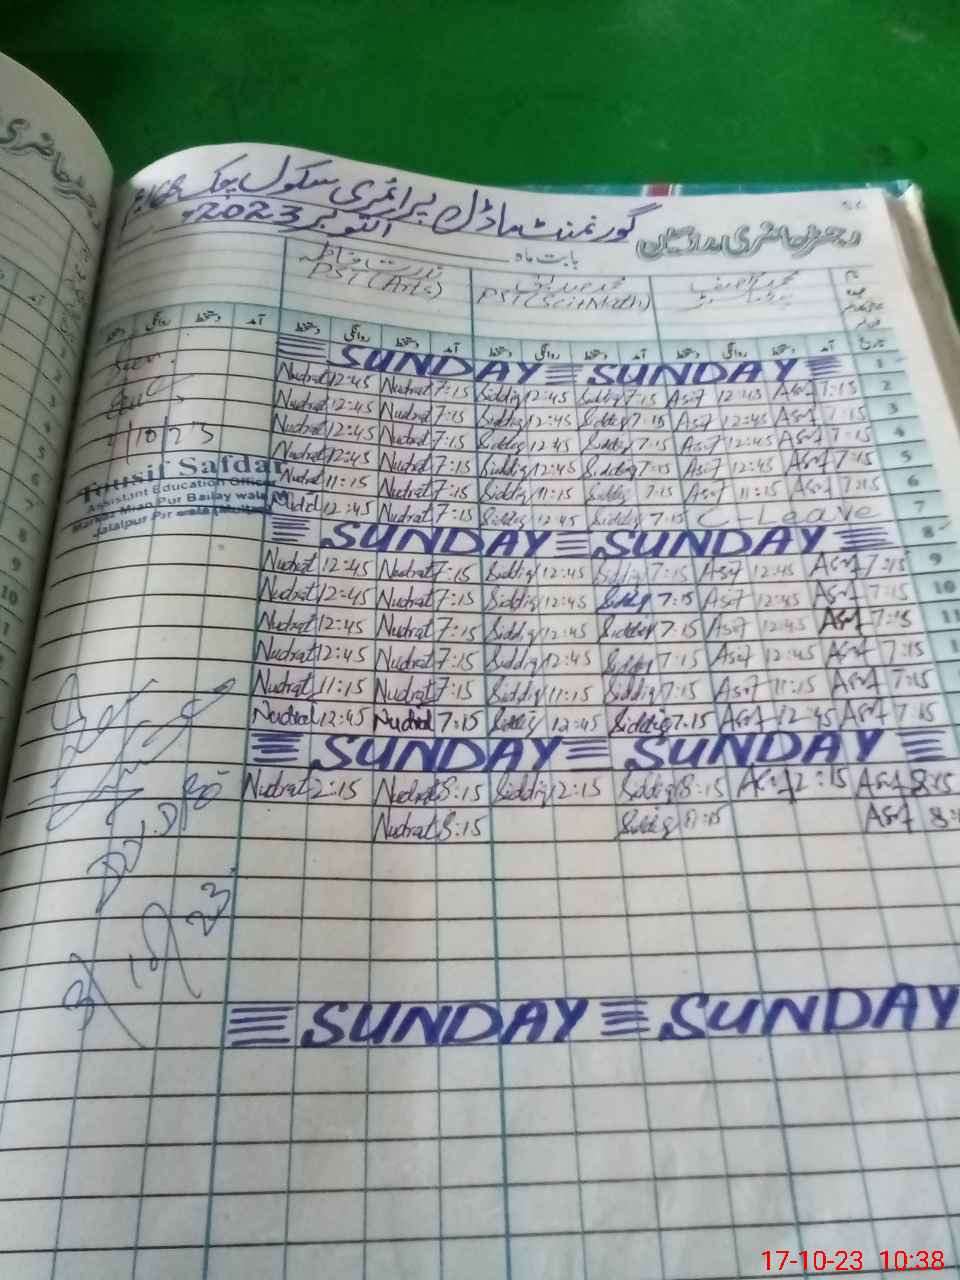 رجسٹر حاضری مدرسین
گورنمنٹ ماڈل پرائمری سکول چک
بابت ماہ اکتوبر 2023ء
PST (Arts) PST (Sci+Math)
آمد دستخط روانگی دستخط آمد دستخط روانگی دستخط آمد دستخط روانگی دستخط آمد دستخط روانگی دستخط
SUNDAY SUNDAY 1
Nudrat 12:45 Nudrat 7:15 Siddiq 12:45 Siddiq 7:15 Asif 12:45 Asif 7:15 2
Nudrat 12:45 Nudrat 7:15 Siddiq 12:45 Siddiq 7:15 Asif 12:45 Asif 7:15 3
Nudrat 12:45 Nudrat 7:15 Siddiq 12:45 Siddiq 7:15 Asif 12:45 Asif 7:15 4
Nudrat 12:45 Nudrat 7:15 Siddiq 12:45 Siddiq 7:15 Asif 12:45 Asif 7:15 5
Nudrat 11:15 Nudrat 7:15 Siddiq 11:15 Siddiq 7:15 Asif 11:15 Asif 7:15 6
Nudrat 12:45 Nudrat 7:15 Siddiq 12:45 Siddiq 7:15 C-Leave 7
SUNDAY SUNDAY 8
Nudrat 12:45 Nudrat 7:15 Siddiq 12:45 Siddiq 7:15 Asif 12:45 Asif 7:15 9
Nudrat 12:45 Nudrat 7:15 Siddiq 12:45 Siddiq 7:15 Asif 12:45 Asif 7:15 10
Nudrat 12:45 Nudrat 7:15 Siddiq 12:45 Siddiq 7:15 Asif 12:45 Asif 7:15 11
Nudrat 12:45 Nudrat 7:15 Siddiq 12:45 Siddiq 7:15 Asif 12:45 Asif 7:15
Nudrat 11:15 Nudrat 7:15 Siddiq 11:15 Siddiq 7:15 Asif 11:15 Asif 7:15
Nudrat 12:45 Nudrat 7:15 Siddiq 12:45 Siddiq 7:15 Asif 12:45 Asif 7:15
SUNDAY SUNDAY
Nudrat 2:15 Nudrat 8:15 Siddiq 12:15 Siddiq 8:15 Asif 2:15 Asif 8:15
Nudrat 8:15 Siddiq 8:15 Asif 8:
SUNDAY SUNDAY
Tousif Safdar
Assistant Education Officer
Markaz Mian Pur Bailay wala (M)
Jalalpur Pir wala (Multan)
17-10-23 10:38